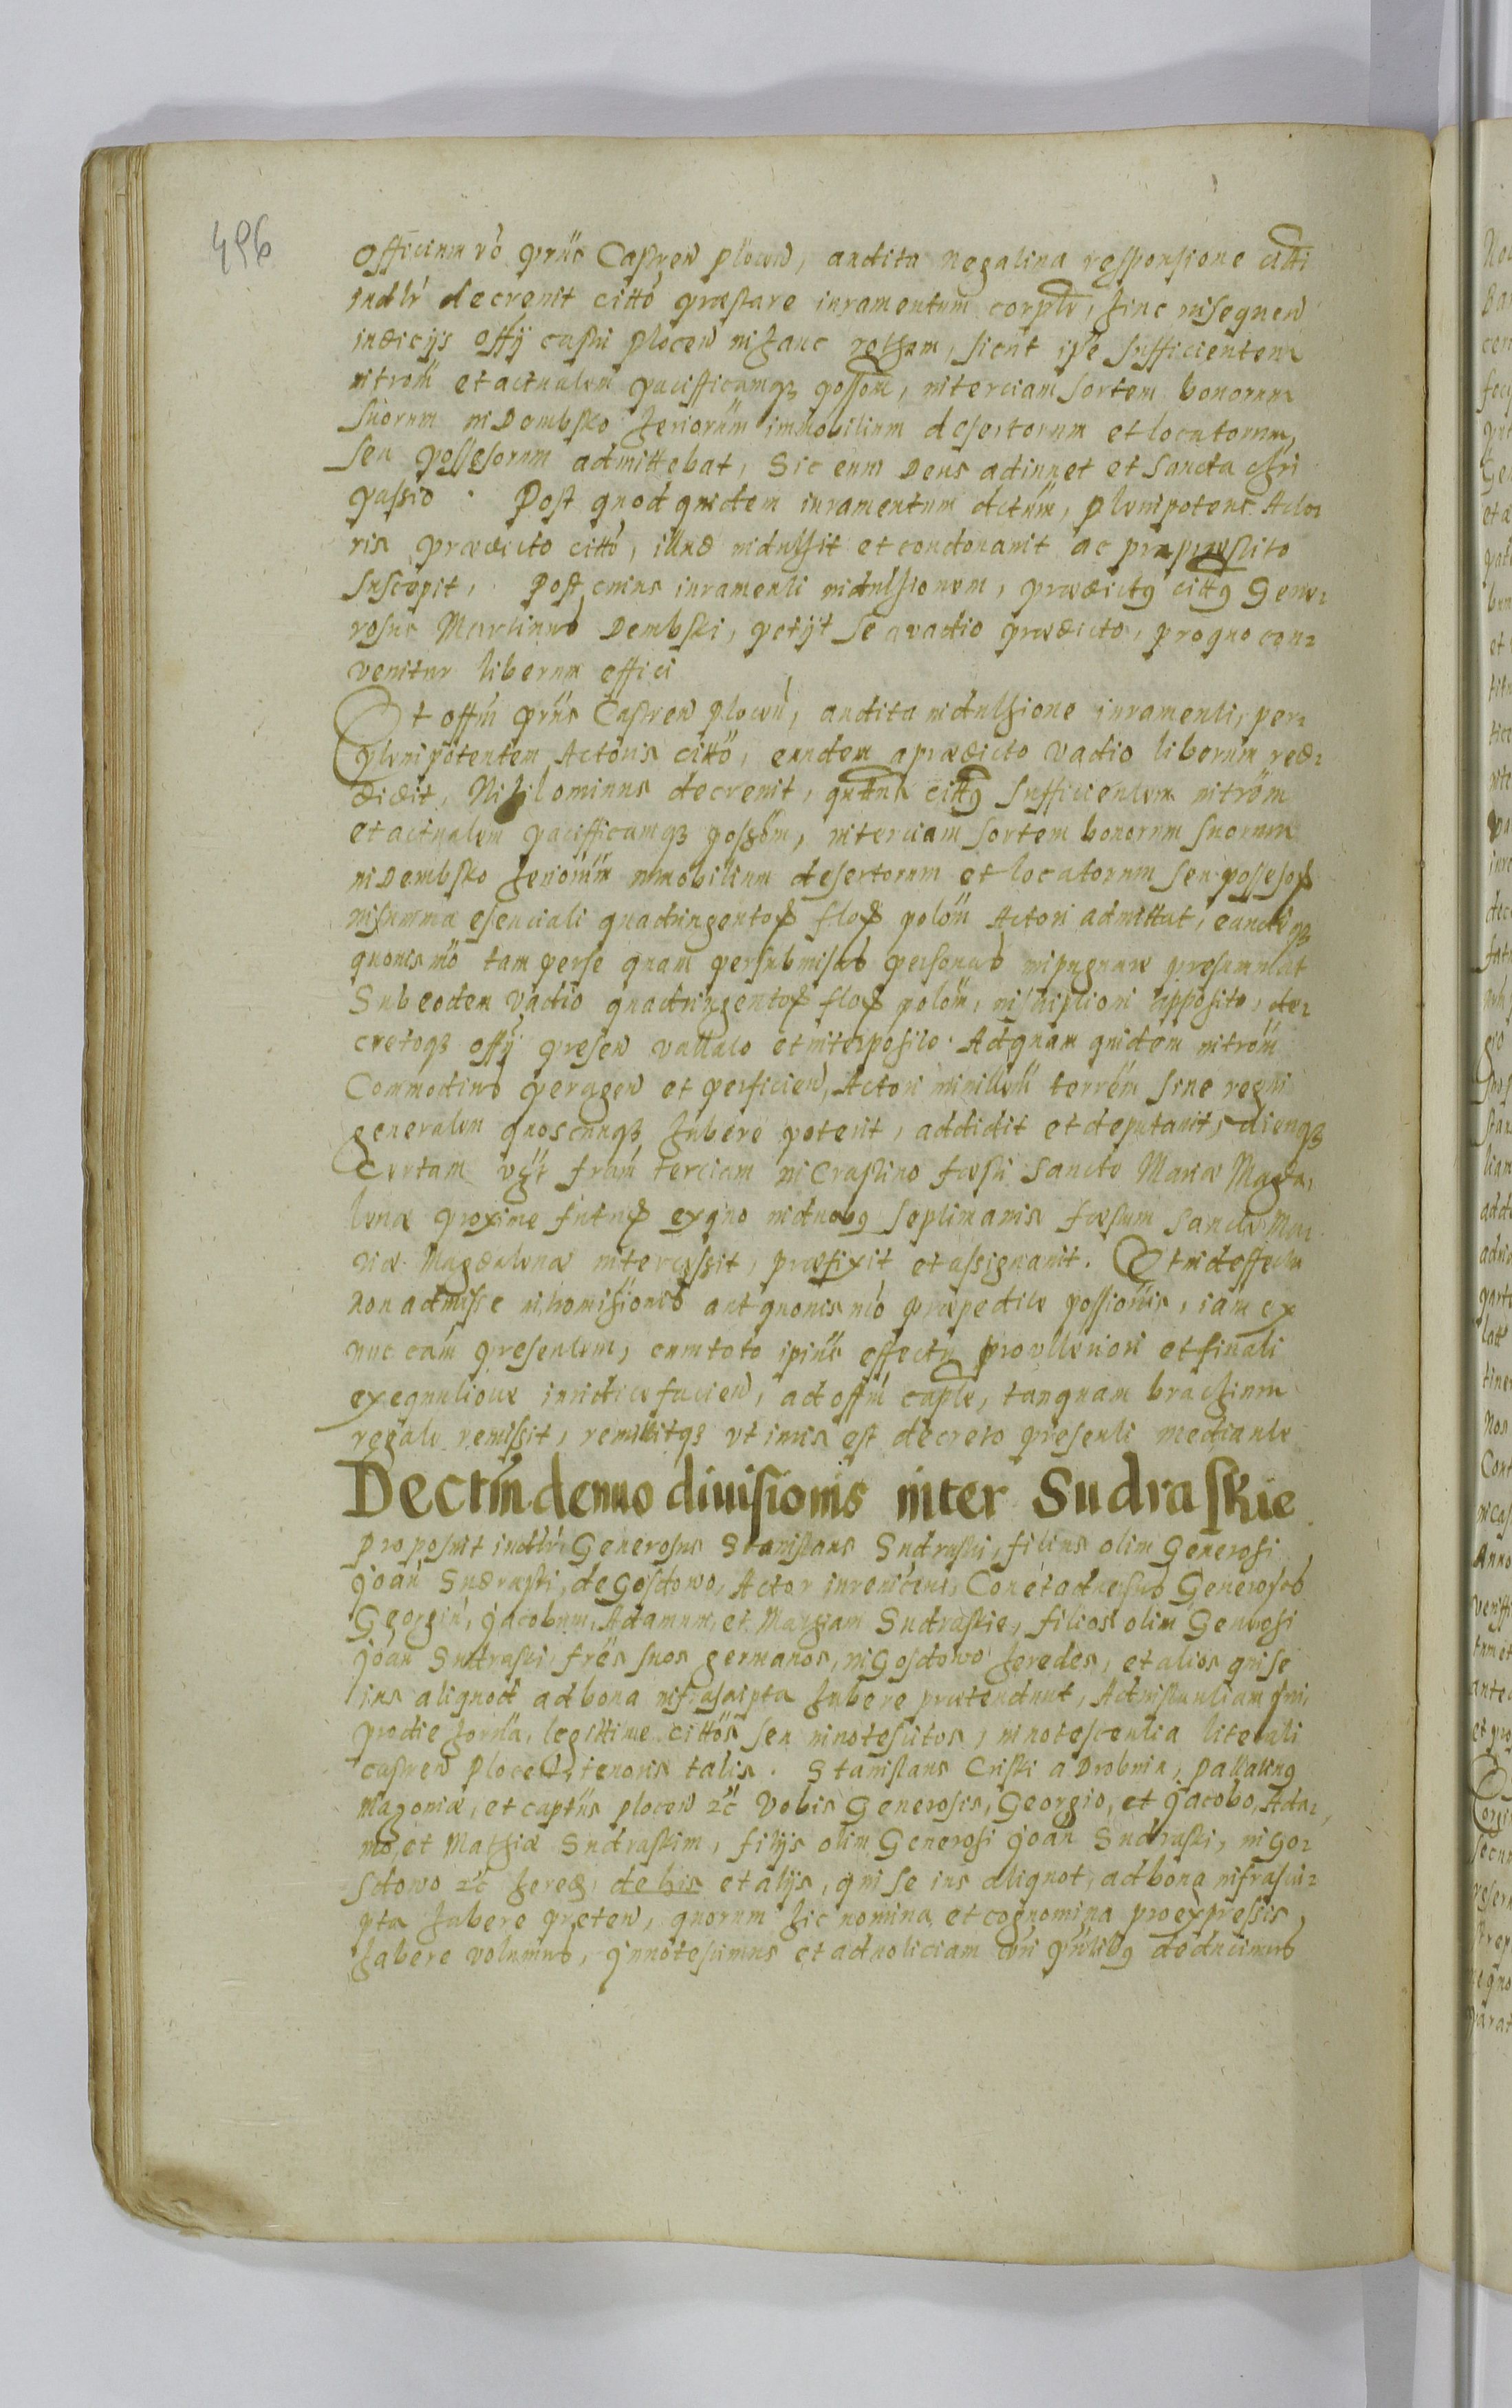 496
Officium vo prns Castren Plocen, audita negatiua responsione citti
indlr decreuit citto præstare iuramentum corple, hinc in sequen
iudicijs offÿ castri Plocen in hanc rotham, sicut ipse sufficientem
introm et actualem pacifficamqʒ possom, in terciam sortem bonorum
suorum in Dembsko heriorum immobilium desertorum et locatorum,
seu possesorum admittebat, Sic eum Deus adiuuet et sancta chri
passio. Post quod quidem iuramentum dictum, plenipotens Acto-
ris prædicto citto, illud indulsit et condonauit ac pro præstito
suscepit, Post cuius iuramenti indulsionem, prædictꝰ cittꝰ Gene-
rosus Martinus Dembski, petijt se a vadio prædicto, pro quo con-
uenitur liberum effici
Et offm prns Castren Plocen, audita indulsione iuramenti, per
plenipotentem Actoris citto, eundem a prædicto vadio liberum red-
didit, Nihilominus decreuit, quatnus cittꝰ sufficientem introm
et actualem pacifficamqʒ possom, in terciam sortem bonorum suorum
in Dembsko heriorum immobilium desertorum et locatorum seu possesoꝝ
in summa esenciali quadringentoꝝ floꝝ polon Actori admittat, eandemqʒ
quouis mo tam per se quam per submissas personas impugnare presummat
Sub eodem vadio quadringentoꝝ floꝝ polon, inscriptioni apposito, de-
cretoqʒ offÿ presen vallato et interposito. Ad quam quidem introm
Commodius peragen et perficien, Actori ministlem terrem siue regni
generalem quoscunqʒ habere poterit, addidit et deputauit, diemqʒ
certam vgr fram terciam in Crastino festi Sanctæ Mariæ Magda-
lenæ proxime futuꝝ ex quo in duobꝰ septimanis festum Sanctæ Ma-
riæ Magdalenæ intercessit, præfixit et assignauit. Et in deffectu
non admisse intromissionis aut quouis mo præpeditæ possionis, iam ex
nunc eam presentem, cum toto ipius effectu pro vlteriori et finali
exequutione iuridice facien, ad offm caple, tanquam brachium
regale remissit, remittitqʒ vt iuris est decreto presenti mediante
Dectm denuo diuisionis inter Sudraskie
Proposuit indlr Generosus Stanislaus Sudraski, filius olim Generosi
Joan Sudraski, de Gosdowo, Actor iure vicens, Con et aduersus Generosos
Georgiu, Jacobum, Adamum, et Mathiam Sudraskie, filios olim Generosi
Joan Sudraski, fres suos germanos, in Gosdowo heredes, et alios qui se
ius aliquod ad bona infrascripta habere prætendunt, Ad instantiam sui
pro die horna, legittime cittos seu innotescitos, innotescentia literali
castren Plocen, tenoris talis. Stanislaus Criski a Drobnin, Pallatinꝰ
Mazoniæ, et captus Plocen ꝛc Vobis Generosis, Georgio, et Jacobo, Ada-
mo, et Mathiæ Sudraskim, filÿs olim Generosi Joan Sudraski, in Go-
sdowo ꝛc hered, de his et alÿs, qui se ius aliquot, ad bona infrascri-
pta habere preten, quorum hic nomina et cognomina pro expressis
habere volumus, Innotescimus et ad noticiam deducimus